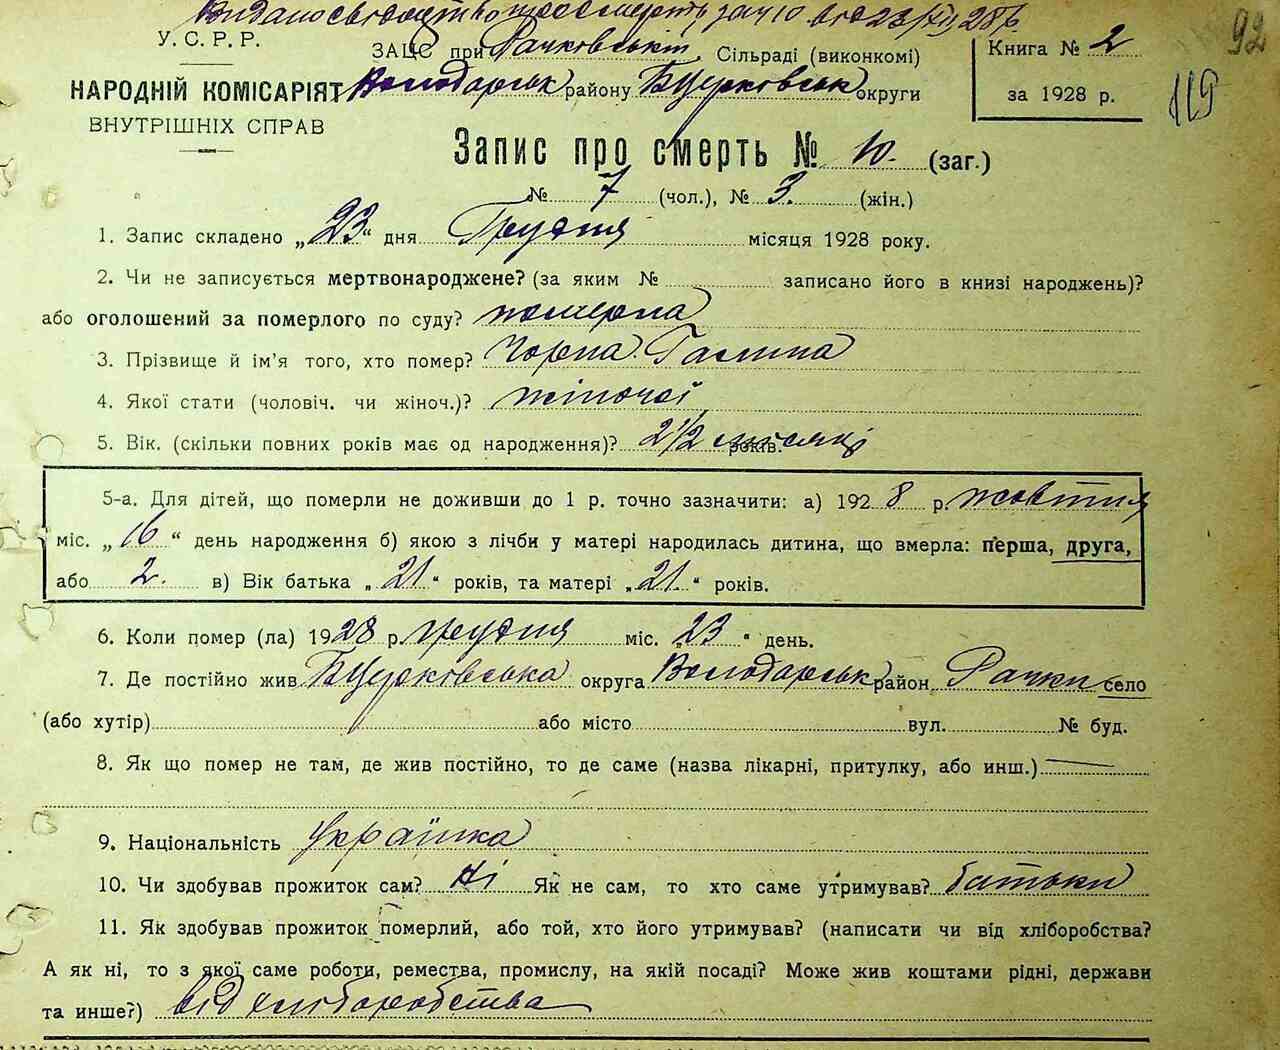 Видано свідоцтво про смерть за ч 10 від 23/XII 28 р.
92
У.С.Р.Р.
ЗАЦС при Рачковській Сільраді (виконкомі)
Книга № 2
НАРОДНІЙ КОМІСАРІЯТ Володарськ району БЦерковськ округи
за 1928 р.
119
ВНУТРІШНІХ СПРАВ
Запис про смерть № 10. (заг.)
№ 7 (чол.), № 3. (жін.)
1. Запис складено „23“ дня Грудня місяця 1928 року.
2. Чи не записується мертвонароджене? (за яким № записано його в книзі народжень)?
або оголошений за померлого по суду? померла
3. Прізвище й ім'я того, хто помер? Чорна Галина
4. Якої стати (чоловіч. чи жіноч.)? жіночої
5. Вік. (скільки повних років має од народження)? 2 1/2 місяці років.
5-а. Для дітей, що померли не доживши до 1 р. точно зазначити: а) 1928 р. жовтня
міс. „16“ день народження б) якою з лічби у матері народилась дитина, що вмерла: перша, друга,
або 2. в) Вік батька „21“ років, та матері „21“ років.
6. Коли помер (ла) 1928 р. грудня міс. „23“ день.
7. Де постійно жив БЦерковська округа Володарськ район Рачки село
(або хутір) або місто вул. № буд.
8. Як що помер не там, де жив постійно, то де саме (назва лікарні, притулку, або инш.) —
9. Національність Українка
10. Чи здобував прожиток сам? Ні Як не сам, то хто саме утримував? батьки
11. Як здобував прожиток померлий, або той, хто його утримував? (написати чи від хліборобства?
А як ні, то з якої саме роботи, ремества, промислу, на якій посаді? Може жив коштами рідні, держави
та инше?) від хліборобства